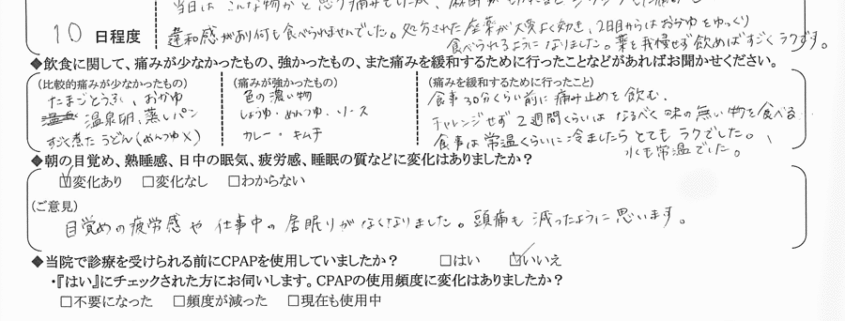 当日は こんな物かと思う痛みでしたが、麻酔が
10 日程度
違和感があり何も食べられませんでした。処方された座薬が大変よく効き、2日目からはおかゆをゆっくり
食べられるようになりました。薬を我慢せず飲めばすごくラクです。
◆飲食に関して、痛みが少なかったもの、強かったもの、また痛みを緩和するために行ったことなどがあればお聞かせください。
(比較的痛みが少なかったもの)
たまごとうふ、おかゆ
温泉卵、蒸しパン
すごく煮たうどん(めんつゆ×)
(痛みが強かったもの)
色の濃い物
しょうゆ・めんつゆ・ソース
カレー・キムチ
(痛みを緩和するために行ったこと)
食事30分くらい前に痛み止めを飲む.
チャレンジせず 2週間くらいは なるべく 味の無い物を食べる
食事は常温くらいに冷ましたら とても ラクでした。
水も常温でした。
◆朝の目覚め、熟睡感、日中の眠気、疲労感、睡眠の質などに変化はありましたか?
☑変化あり □変化なし □わからない
(ご意見)
目覚めの疲労感や 仕事中の居眠りがなくなりました。頭痛も 減ったように思います。
◆当院で診療を受けられる前にCPAPを使用していましたか? □はい ☑いいえ
・『はい』にチェックされた方にお伺いします。CPAPの使用頻度に変化はありましたか?
□不要になった □頻度が減った □現在も使用中